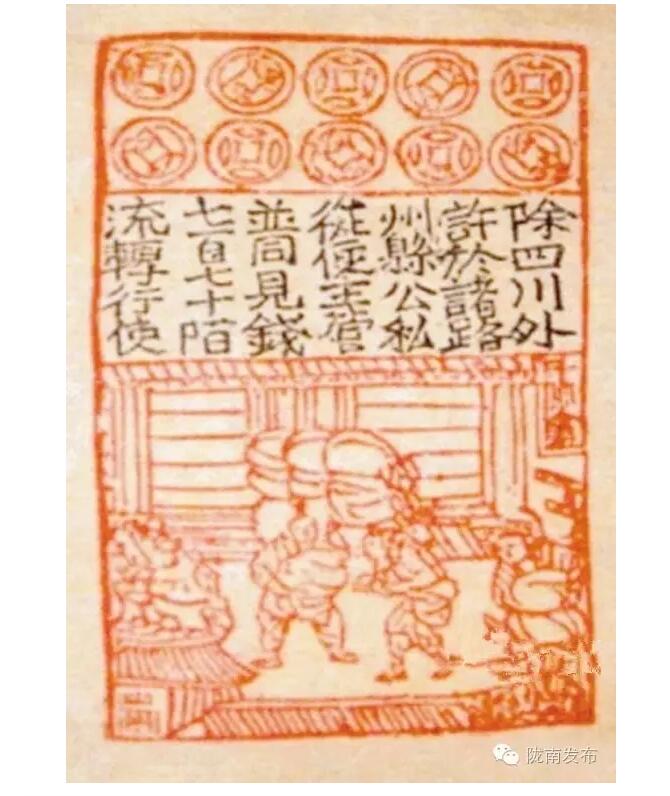 除四川外
許於諸路
州縣公私
從便主管
並同見錢
七百七十陌
流轉行使
陇南发布